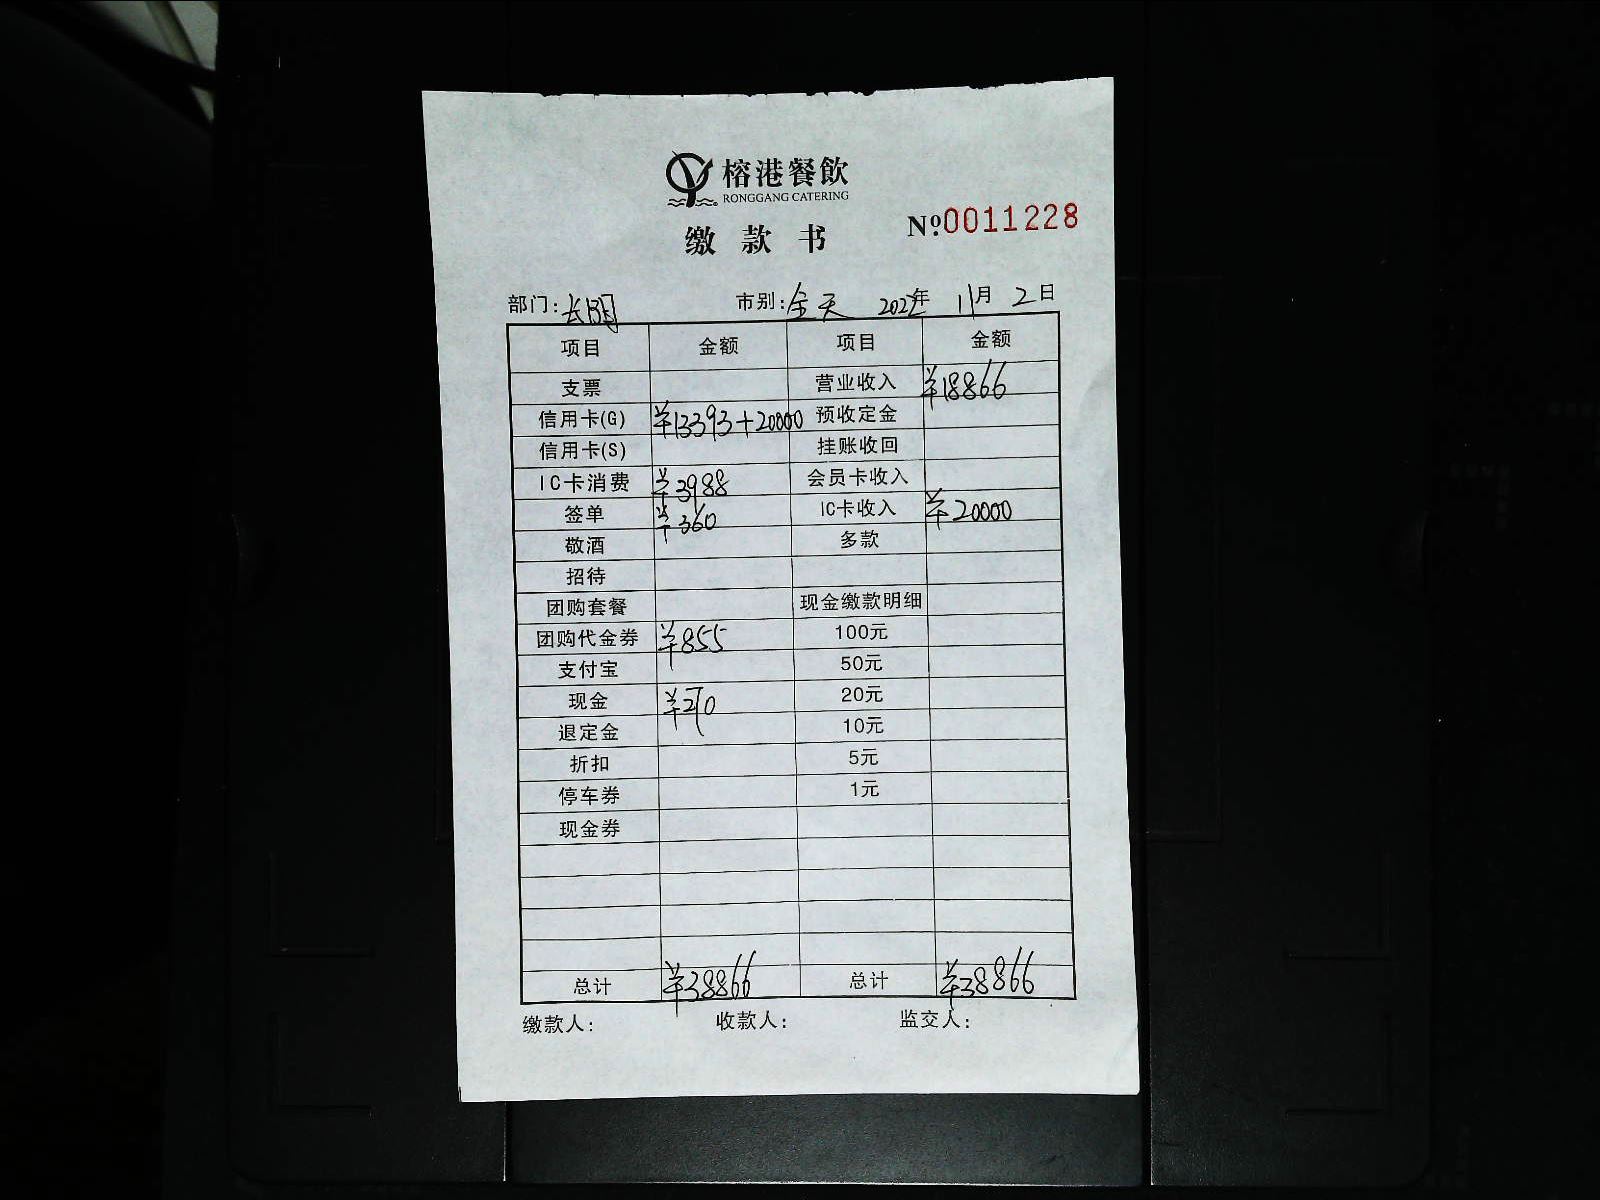 榕港餐飲
RONGGANG CATERING
缴款书
№0011228
部门: 市别:全天 2022年 11月 2日
项目 金额 项目 金额
支票 营业收入 ¥18866
信用卡(G) ¥13393+20000 预收定金
信用卡(S) 挂账收回
IC卡消费 ¥3988 会员卡收入
签单 ¥360 IC卡收入 ¥20000
敬酒 多款
招待
团购套餐 现金缴款明细
团购代金券 ¥855 100元
支付宝 50元
现金 ¥270 20元
退定金 10元
折扣 5元
停车券 1元
现金券
总计 ¥38866 总计 ¥38866
缴款人: 收款人: 监交人: